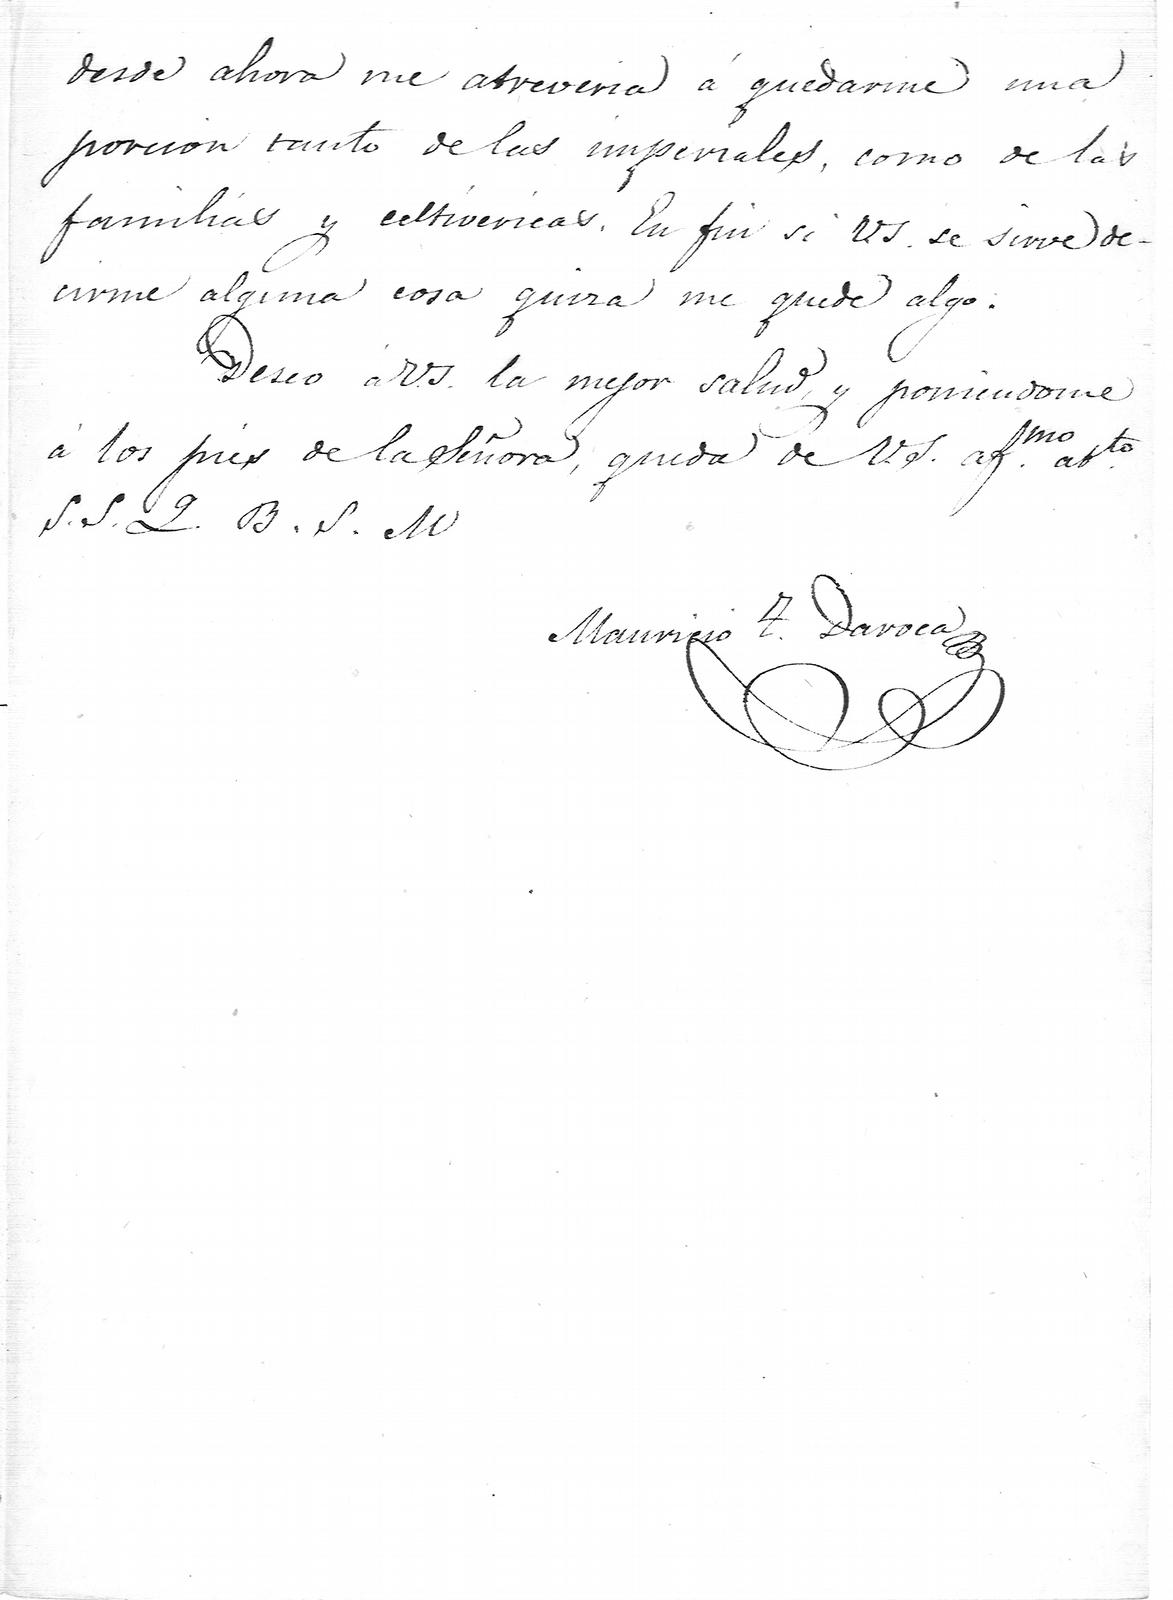 desde ahora me atreveria á quedarme una
porcion tanto de las imperiales, como de las
familias y celtivericas. En fin si VS. se sirve de-
cirme alguna cosa quiza me quede algo.
Deseo á VS. la mejor salud, y poniendome
á los pies de la Señora, queda de V.S. af.mo at.to
S. S. Q. B. S. M
Mauricio Z. Daroca